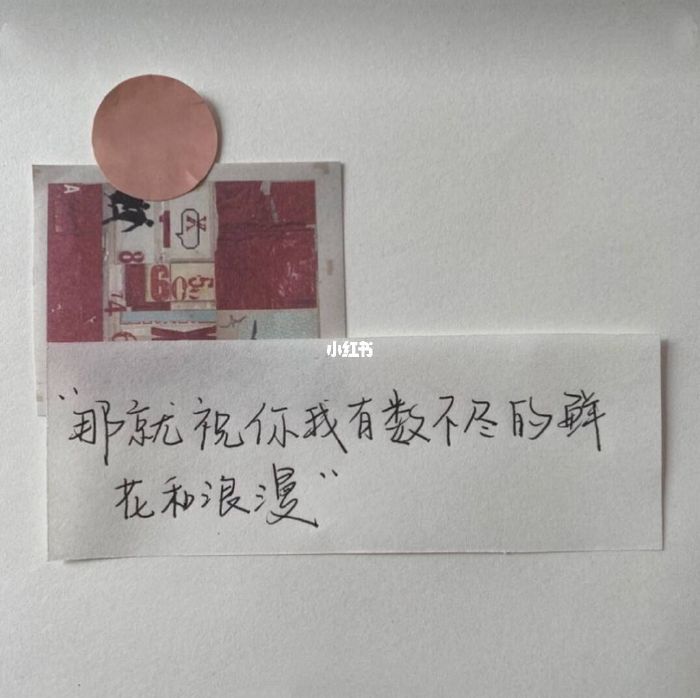 A
1 X
8
60
5
74
小红书
“那就祝你我有数不尽的鲜
花和浪漫”